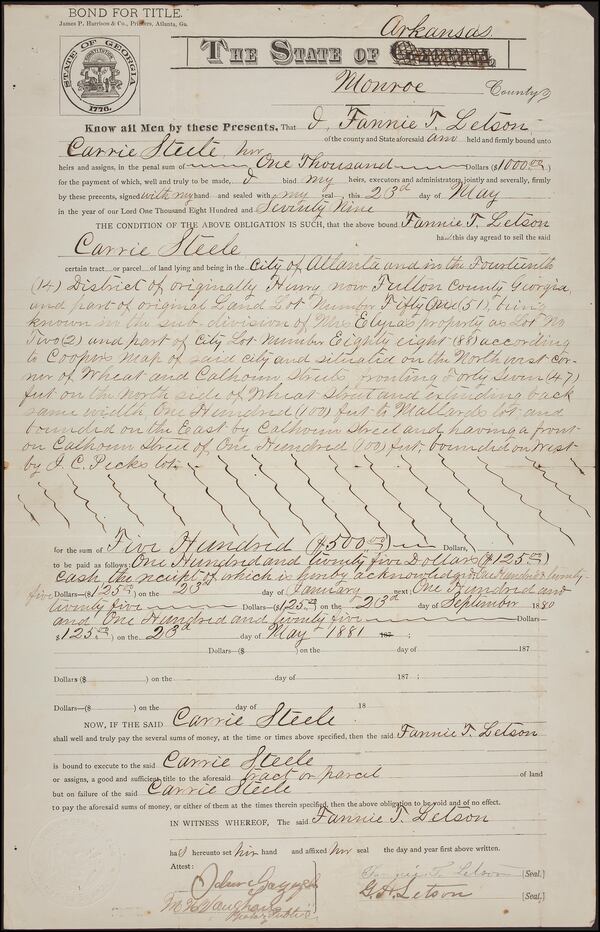 BOND FOR TITLE.
James P. Harrison & Co., Printers, Atlanta, Ga.
STATE OF GEORGIA
1776.
Arkansas
THE STATE OF
Monroe County
Know all Men by these Presents, That I, Fannie T. Letson
of the county and State aforesaid am held and firmly bound unto
Carrie Steele, her
heirs and assigns, in the penal sum of One Thousand Dollars ($1000.00)
for the payment of which, well and truly to be made, I bind my heirs, executors and administrators, jointly and severally, firmly
by these presents, signed with my hand and sealed with my seal, this 23d day of May
in the year of our Lord One Thousand Eight Hundred and Seventy Nine
THE CONDITION OF THE ABOVE OBLIGATION IS SUCH, that the above bound Fannie T. Letson
has this day agreed to sell the said
Carrie Steele
certain tract or parcel of land lying and being in the City of Atlanta and in the Fourteenth
(14) District of originally Henry, now Fulton County Georgia,
and part of original Land Lot Number Fifty One (51), being
known in the sub-division of Mrs Elyea's property as Lot No
Two (2) and part of City Lot Number Eighty eight (88) according
to Coopers Map of said city and situated on the North west cor-
ner of Wheat and Calhoun Streets fronting Forty Seven (47)
feet on the North side of Wheat Street and extending back
same width One Hundred (100) feet to Mallards lot and
bounded on the East by Calhoun Street and having a front
on Calhoun Street of One Hundred (100) feet, bounded on West
by J. C. Pecks lot.
for the sum of Five Hundred ($500.00) Dollars,
to be paid as follows: One Hundred and twenty five Dollars ($125.00)
Cash the receipt of which is hereby acknowledged, One Hundred & twenty-
five Dollars ($125.00) on the 23d day of January next One Hundred and
twenty five Dollars ($125.00) on the 23d day of September 1880
and One Hundred and twenty five Dollars
$125.00) on the 23d day of May 1881 187 ;
Dollars ($ ) on the day of 187
Dollars ($ ) on the day of 187 ;
Dollars ($ ) on the day of 18
NOW, IF THE SAID Carrie Steele
shall well and truly pay the several sums of money, at the time or times above specified, then the said Fannie T. Letson
is bound to execute to the said Carrie Steele
or assigns, a good and sufficient title to the aforesaid tract or parcel of land
but on failure of the said Carrie Steele
to pay the aforesaid sums of money, or either of them at the times therein specified, then the above obligation to be void and of no effect.
IN WITNESS WHEREOF, The said Fannie T. Letson
has hereunto set her hand and affixed her seal the day and year first above written.
Attest:
Fannie T. Letson [Seal.]
G. H. Letson [Seal.]
Vaughan
Notary Public